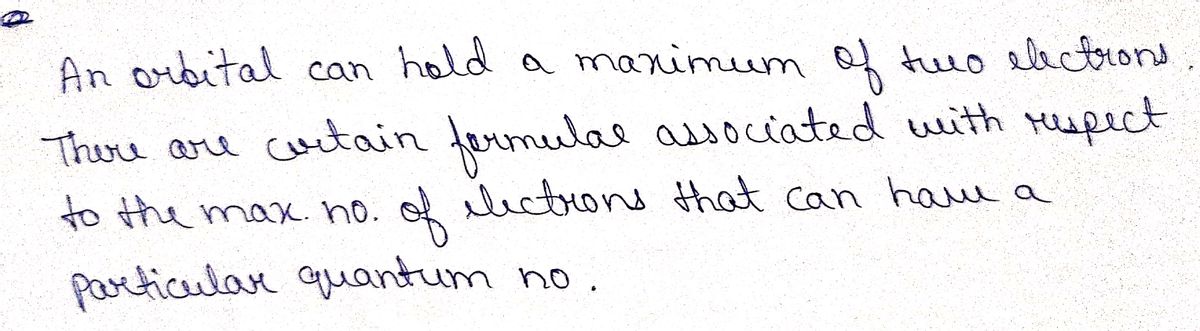 An orbital can hold a maximum of two electrons.
There are certain formulae associated with respect
to the max. no. of electrons that can have a
particular quantum no.